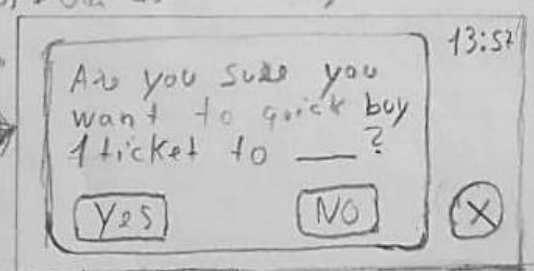 13:57
Are you sure you
want to quick buy
1 ticket to ___ ?
Yes
NO
X